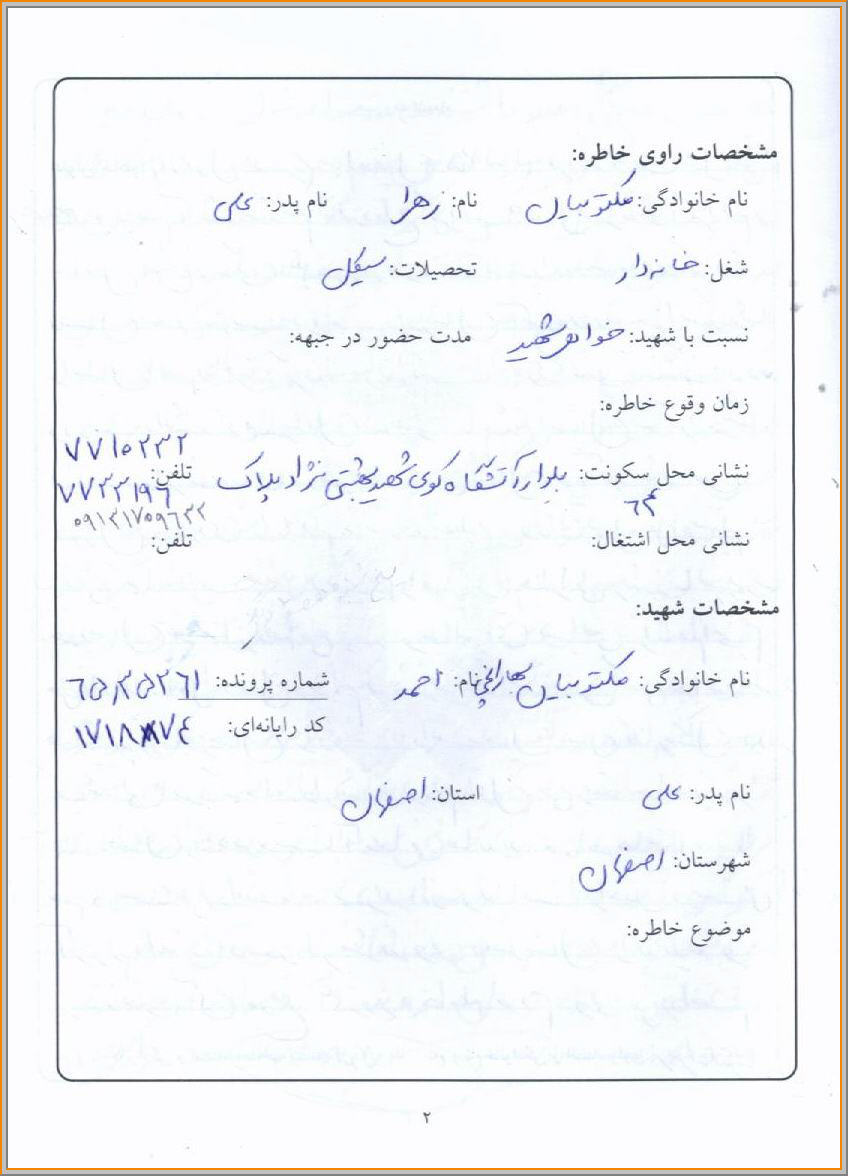 مشخصات راوی خاطره:
نام خانوادگی: مکتوبیان نام: زهرا نام پدر: علی
شغل: خانه دار تحصیلات: سیکل
نسبت با شهید: خواهر شهید مدت حضور در جبهه:
زمان وقوع خاطره:
۷۷۱۰۲۳۲
نشانی محل سکونت: بلوار آتشگاه کوی شهید بهشتی نژاد پلاک تلفن:
۶۳ ۷۷۳۳۱۹۶
۰۹۱۳۱۷۰۹۶۳۲
نشانی محل اشتغال: تلفن:
مشخصات شهید:
نام خانوادگی: مکتوبیان بهارانچی نام: احمد شماره پرونده:
کد رایانه‌ای:
نام پدر: علی استان: اصفهان
شهرستان: اصفهان
موضوع خاطره:
۲